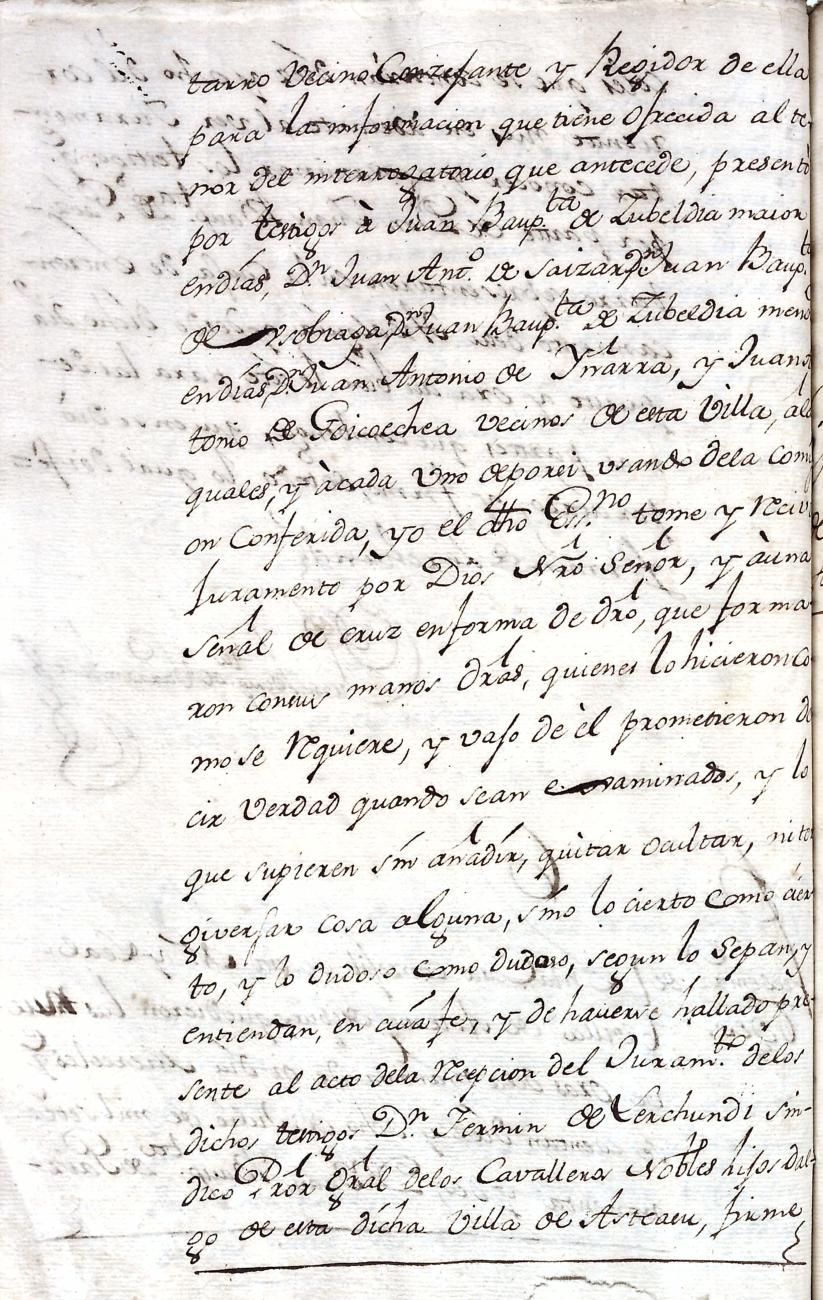 tarro Vecino Conzejante y Regidor de ella
para la informacion que tiene ofrecida al te-
nor del interrogatorio que antecede, presentò
por testigos à Juan Baup.ta de Zubeldia maior
endías, D.n Juan Ant.o de Saizar, D.n Juan Baup.ta
de Ysobiaga, D.n Juan Baup.ta de Zubeldia meno
endías, D.n Juan Antonio de Ynarra, y Juan
tonio de Goicoechea vecinos de esta Villa, alo
quales, y àcada Uno deporsi usando dela Comi
on Conferida, yo el dho Ess.no tome y Recivi
Juramento por Dios Nrõ Señor, y àuna
señal de cruz enforma de drõ, que forma-
ron consus manos drãs, quienes lo hicieron co
mo se Requiere, y vajo de èl prometieron de
cir Verdad quando sean examinados, y lo
que supieren sin añadir, quitar ocultar, ni ter
giversar cosa alguna, sino lo cierto Como cier
to, y lo dudoso Como dudoso, segun lo Sepan, y
entiendan, en cuia fe, y de haverse hallado pre-
sente al acto dela Recepcion del Juram.to delos
dichos testigos D.n Fermin de Lerchundi sin-
dico Prõr Grãl delos Cavalleros Nobles hijos dal-
go de esta dicha Villa de Asteasu, firme